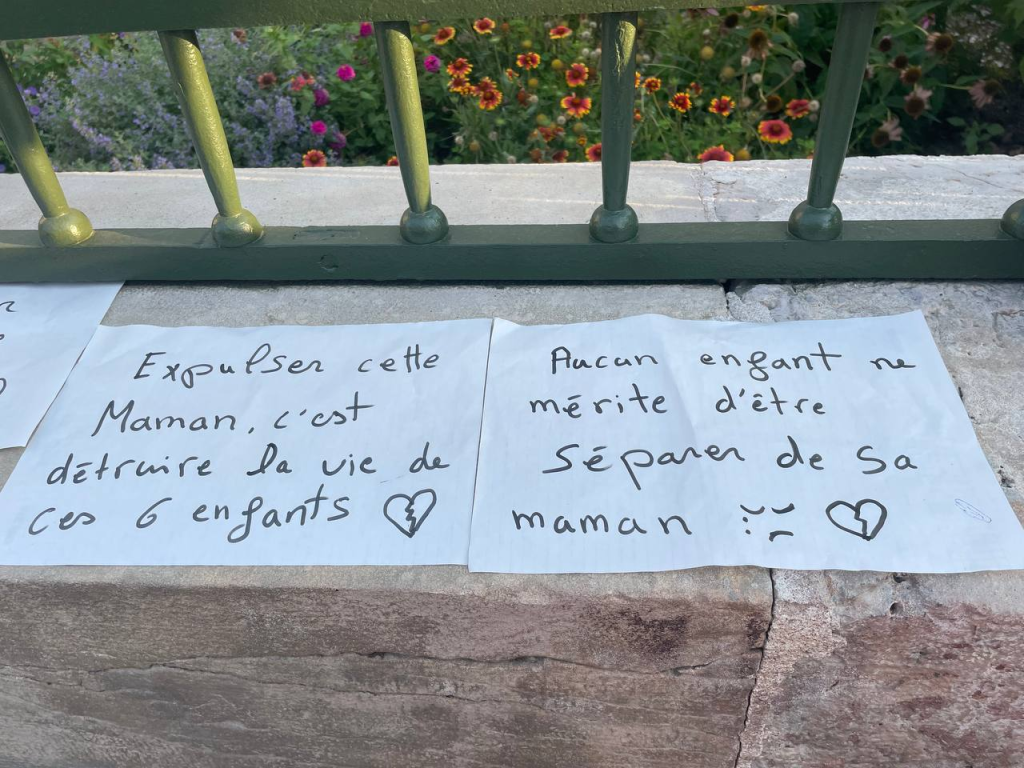 Expulser cette
Maman, c'est
détruire la vie de
ces 6 enfants
Aucun enfant ne
mérite d'être
Séparer de Sa
maman